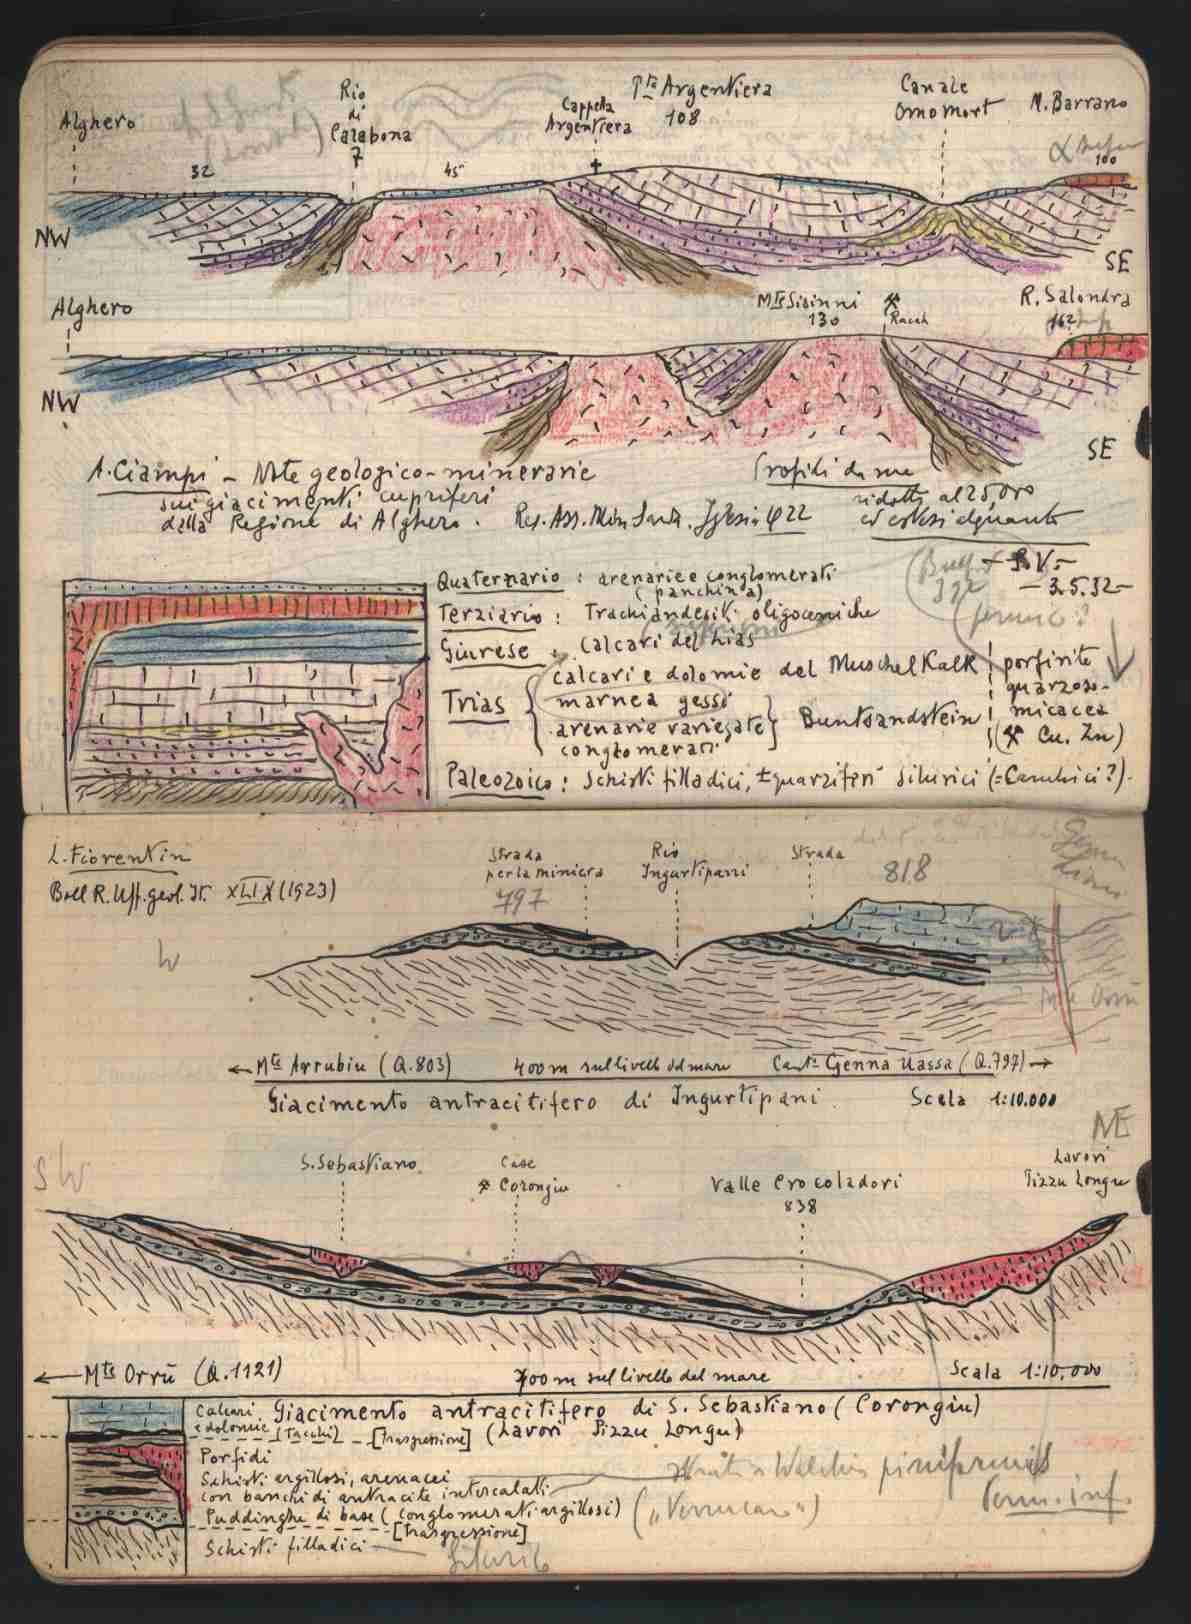 Alghero
Rio
di
Calabona
7
Cappella
Argentiera
Pta Argentiera
108
Canale
Omomort
M. Barrano
100
32
45
NW
SE
Alghero
Mte Sisinni
130
R. Salondra
162
NW
SE
A. Ciampi – Note geologico-minerarie
sui giacimenti cupriferi
della Regione di Alghero.
Res. Ass. Min. Sarda. Iglesias 1922
Profili da me
ridotti al 25,000
ed estesi alquanto
– 3.5.32 –
Quaternario : arenarie e conglomerati
(panchina)
Terziario : Trachiandesiti oligoceniche
Giurese : calcari del Lias
Trias
calcari e dolomie del Muschelkalk
marne a gessi
arenarie variegate
conglomerati
Buntsandstein
porfirite
quarzoso-
micacea
(⚒ Cu. Zn)
Paleozoico : schisti filladici, ± quarziferi silurici (= Cambrici?).
L. Fiorentin
Boll R. Uff. geol. It. XLIX (1923)
W
Strada
per la miniera
797
Rio
Ingurtipani
Strada
818
← Mte Arrubiu (Q.803)
400 m sul livello del mare
Cant. Genna Uassa (Q.797) →
Giacimento antracitifero di Ingurtipani.
Scala 1:10.000
SW
NE
S. Sebastiano
Case
⚒ Corongiu
Valle Crocoladori
838
Lavori
Pizzu Longu
← Mte Orrù (Q.1121)
700 m sul livello del mare
Scala 1:10,000
Giacimento antracitifero di S. Sebastiano (Corongiu)
(Lavori Pizzu Longu)
Calcari
e dolomie (Tacchi) – [Trasgressione]
Porfidi
Schisti argillosi, arenacei
con banchi di antracite intercalati
Puddinghe di base (conglomerati argillosi)
[Trasgressione]
Schisti filladici
Silurico
Walchia piniformis
Perm. inf.
("Verrucano")